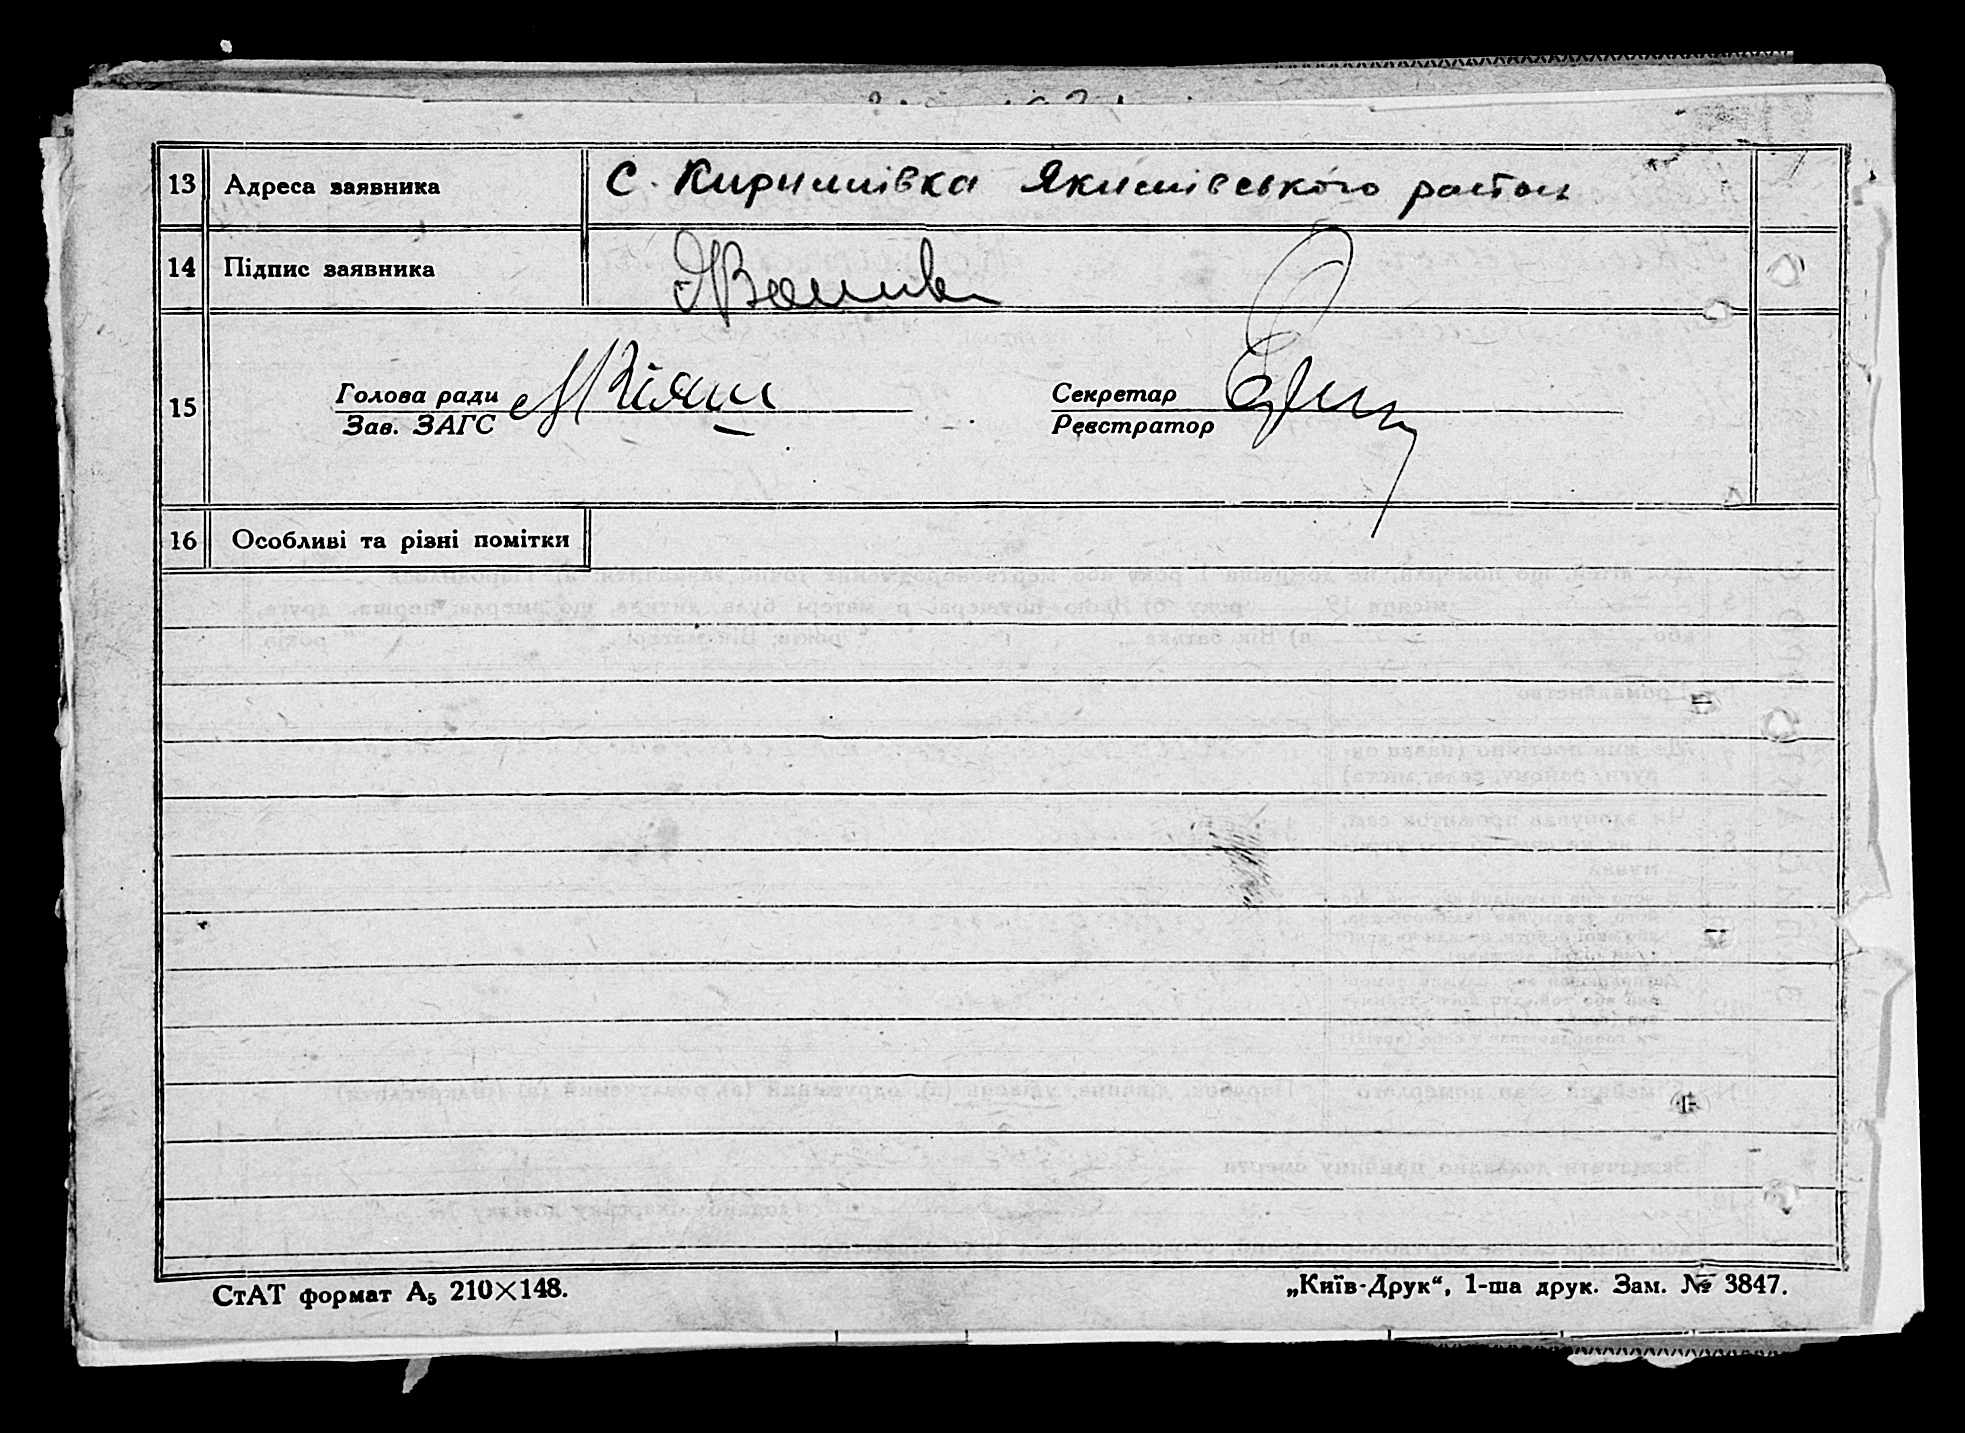 13 Адреса заявника С. Кирилівка Якимівського району
14 Підпис заявника
15 Голова ради
Зав. ЗАГС
Секретар
Реєстратор
16 Особливі та різні помітки
СтАТ формат А₅ 210×148.
„Київ-Друк“, 1-ша друк. Зам. № 3847.